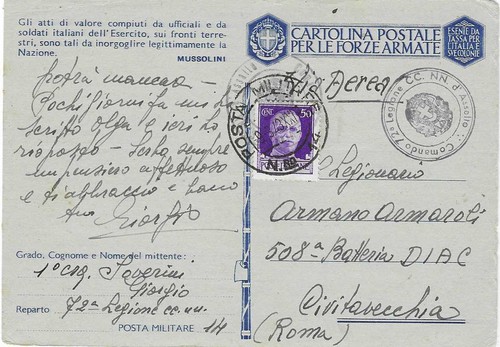 Gli atti di valore compiuti da ufficiali e da
soldati italiani dell'Esercito, sui fronti terre-
stri, sono tali da inorgoglire legittimamente la
Nazione.
MUSSOLINI
CARTOLINA POSTALE
PER LE FORZE ARMATE
ESENTE DA
TASSA PER
L'ITALIA E
SUE COLONIE
potrà mancare –
Pochi giorni fa mi ha
scritto Olga e ieri ho
risposto – Sempre
un pensiero affettuoso
e ti abbraccio e bacio
tuo
Giorgio
Aerea
POSTA MILITARE
N. 14
50
72a Legione CC. NN. d'Assalto
Comando
Legionario
Armano Armaroli
508a Batteria DIAC
Civitavecchia
(Roma)
Grado, Cognome e Nome del mittente:
1° csq. Severini
Giorgio
Reparto 72a Legione cc. nn.
POSTA MILITARE 14